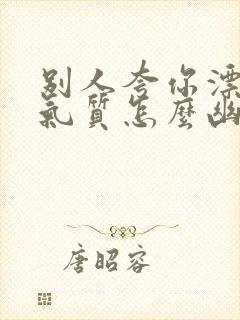 别人夸你漂
氣质怎麽幽
唐昭容